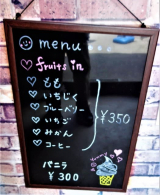 menu
fruits in
もも
いちじく
ブルーベリー
いちご
みかん
コーヒー
¥350
バニラ
¥300